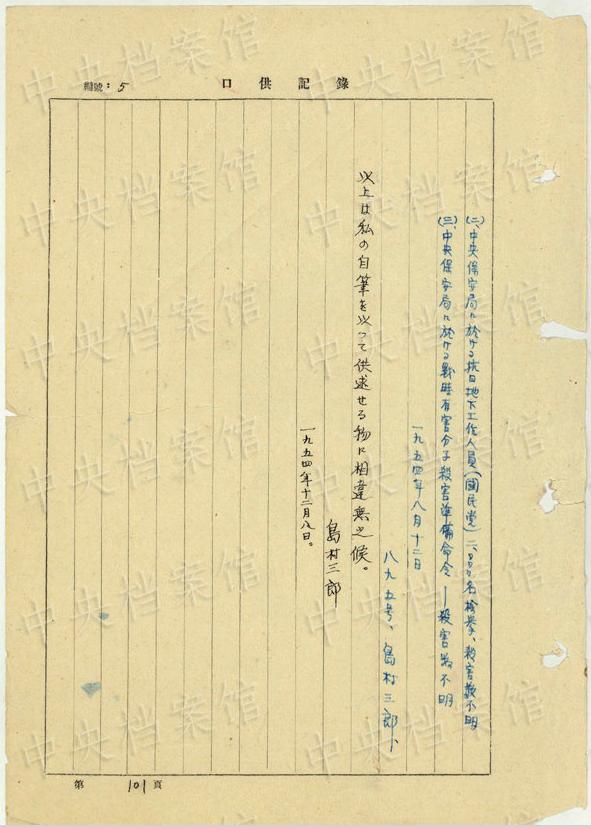 編號：5
口供記錄
(二)、中央保安局に於ける抗日地下工作人員(國民党)二、〇〇〇名検挙、殺害数不明
(三)、中央保安局に於ける戦時有害分子殺害準備命令―殺害数不明
一九五四年八月十二日
八九五号、島村三郎、
以上は私の自筆を以つて供述せる物に相違無之候。
島村三郎
一九五四年十二月八日。
第 101 頁
中央档案馆